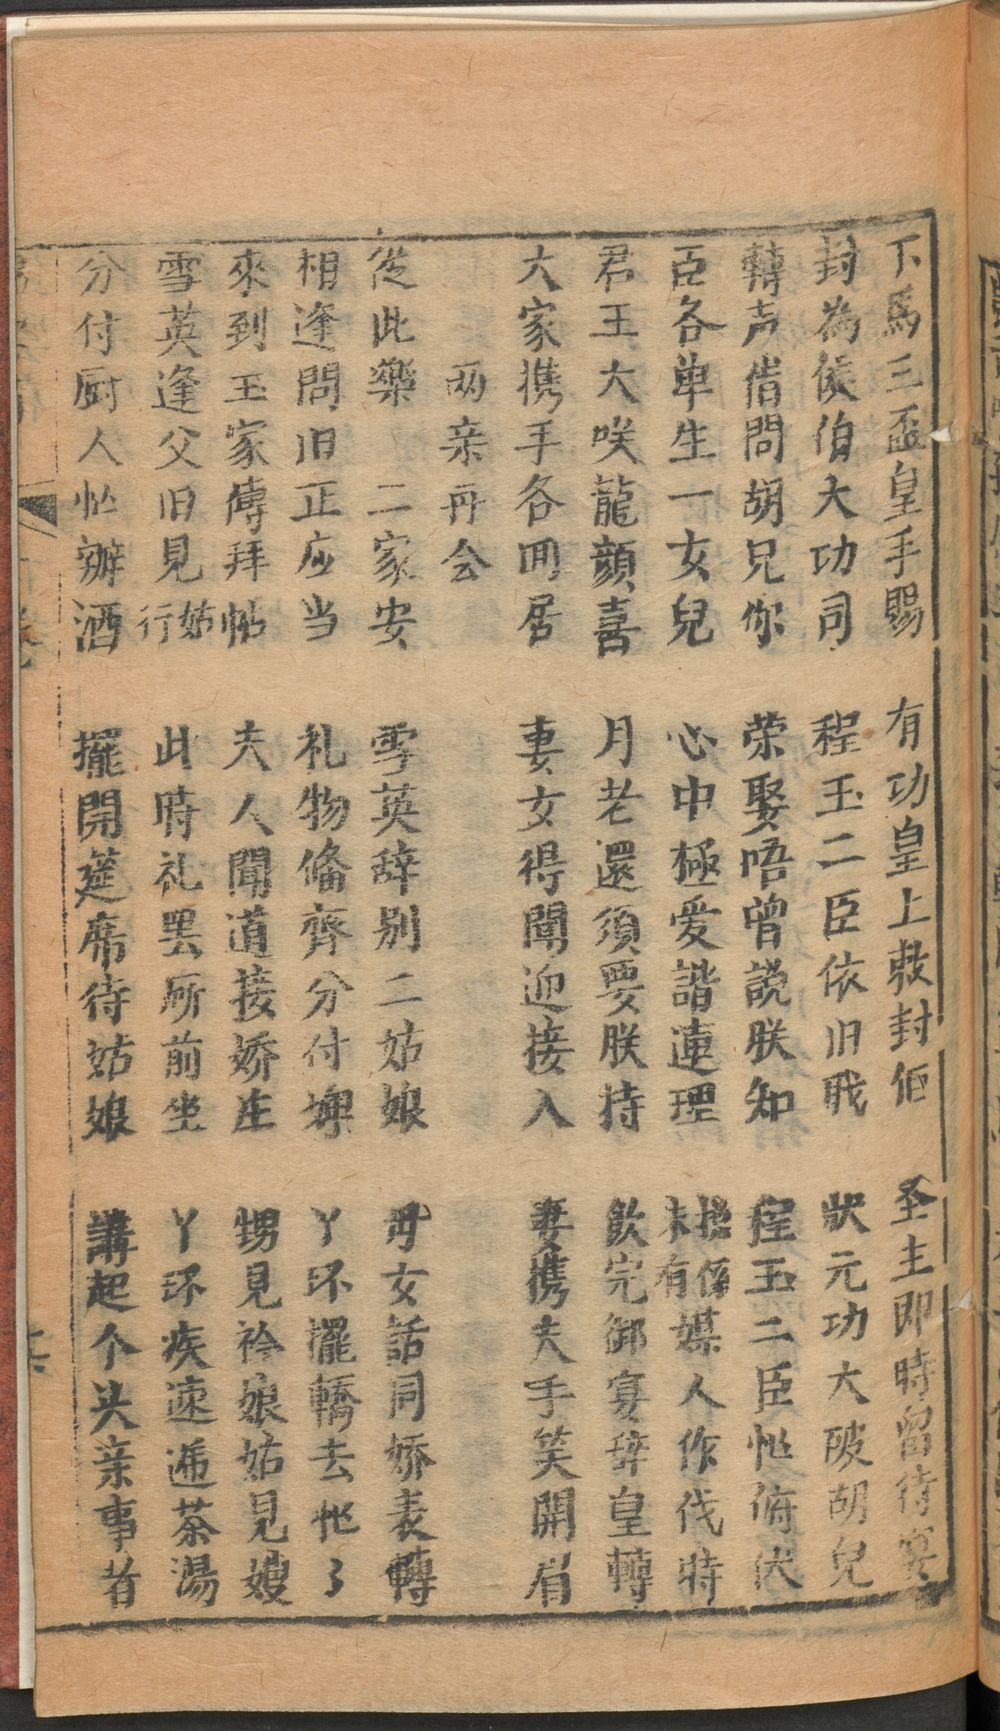 下馬三盃皇手賜　有功皇上敕封佢　圣主即時留待宴
封為侯伯大功同　程玉二臣依旧戝　狀元功大破胡兒
轉声借問胡兄你　荣娶唔曾説朕知　程玉二臣忙俯伏
臣各单生一女兒　心中極爱諧連理　擔係未有媒人作伐時
君王大咲龍顔喜　月老還須要朕持　飲完御宴辞皇轉
大家携手各囬居　妻女得聞迎接入　妻携夫手笑開眉
两亲再会
従此樂　二家安　雪英辞别二姑娘　毋女話同娇表轉
相逢問旧正应当　礼物偹齊分付婢　丫环擺轎去忙了
來到玉家傳拜帖　夫人聞道接娇庄　甥見衿娘姑見嫂
雪英逢父旧見姑行　此時礼罢㕔前坐　丫环疾速逓茶湯
分付厨人忙辦酒　擺開筵席待姑娘　講起个头亲事者